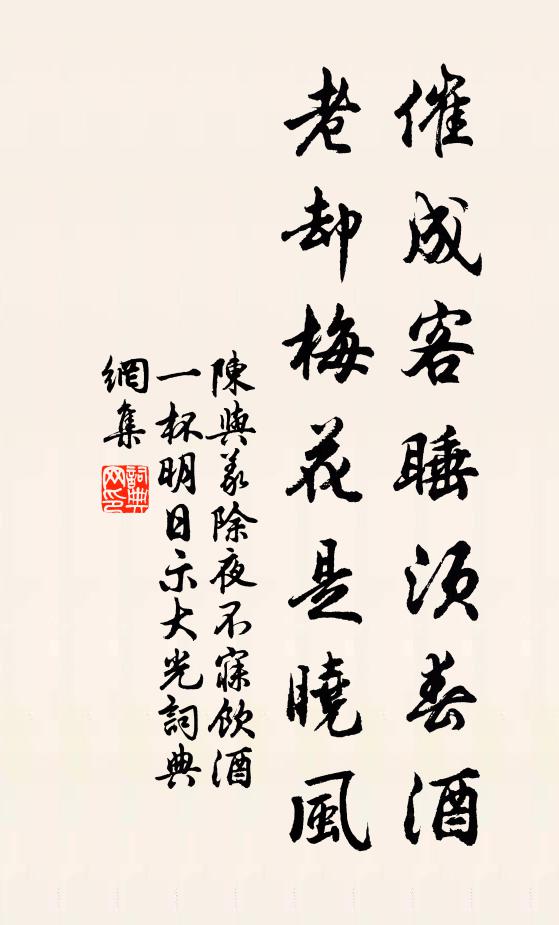 催成客睡須春酒
老却梅花是曉風
陳與義除夜不寐飲酒
一杯明日示大光詞典
網集
詞典網印